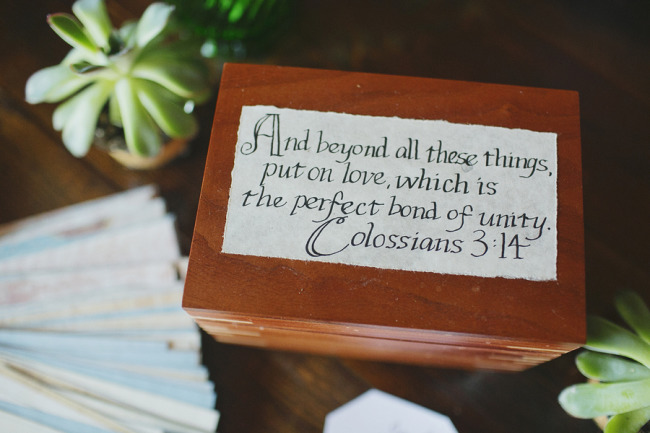 And beyond all these things,
put on love, which is
the perfect bond of unity.
Colossians 3:14